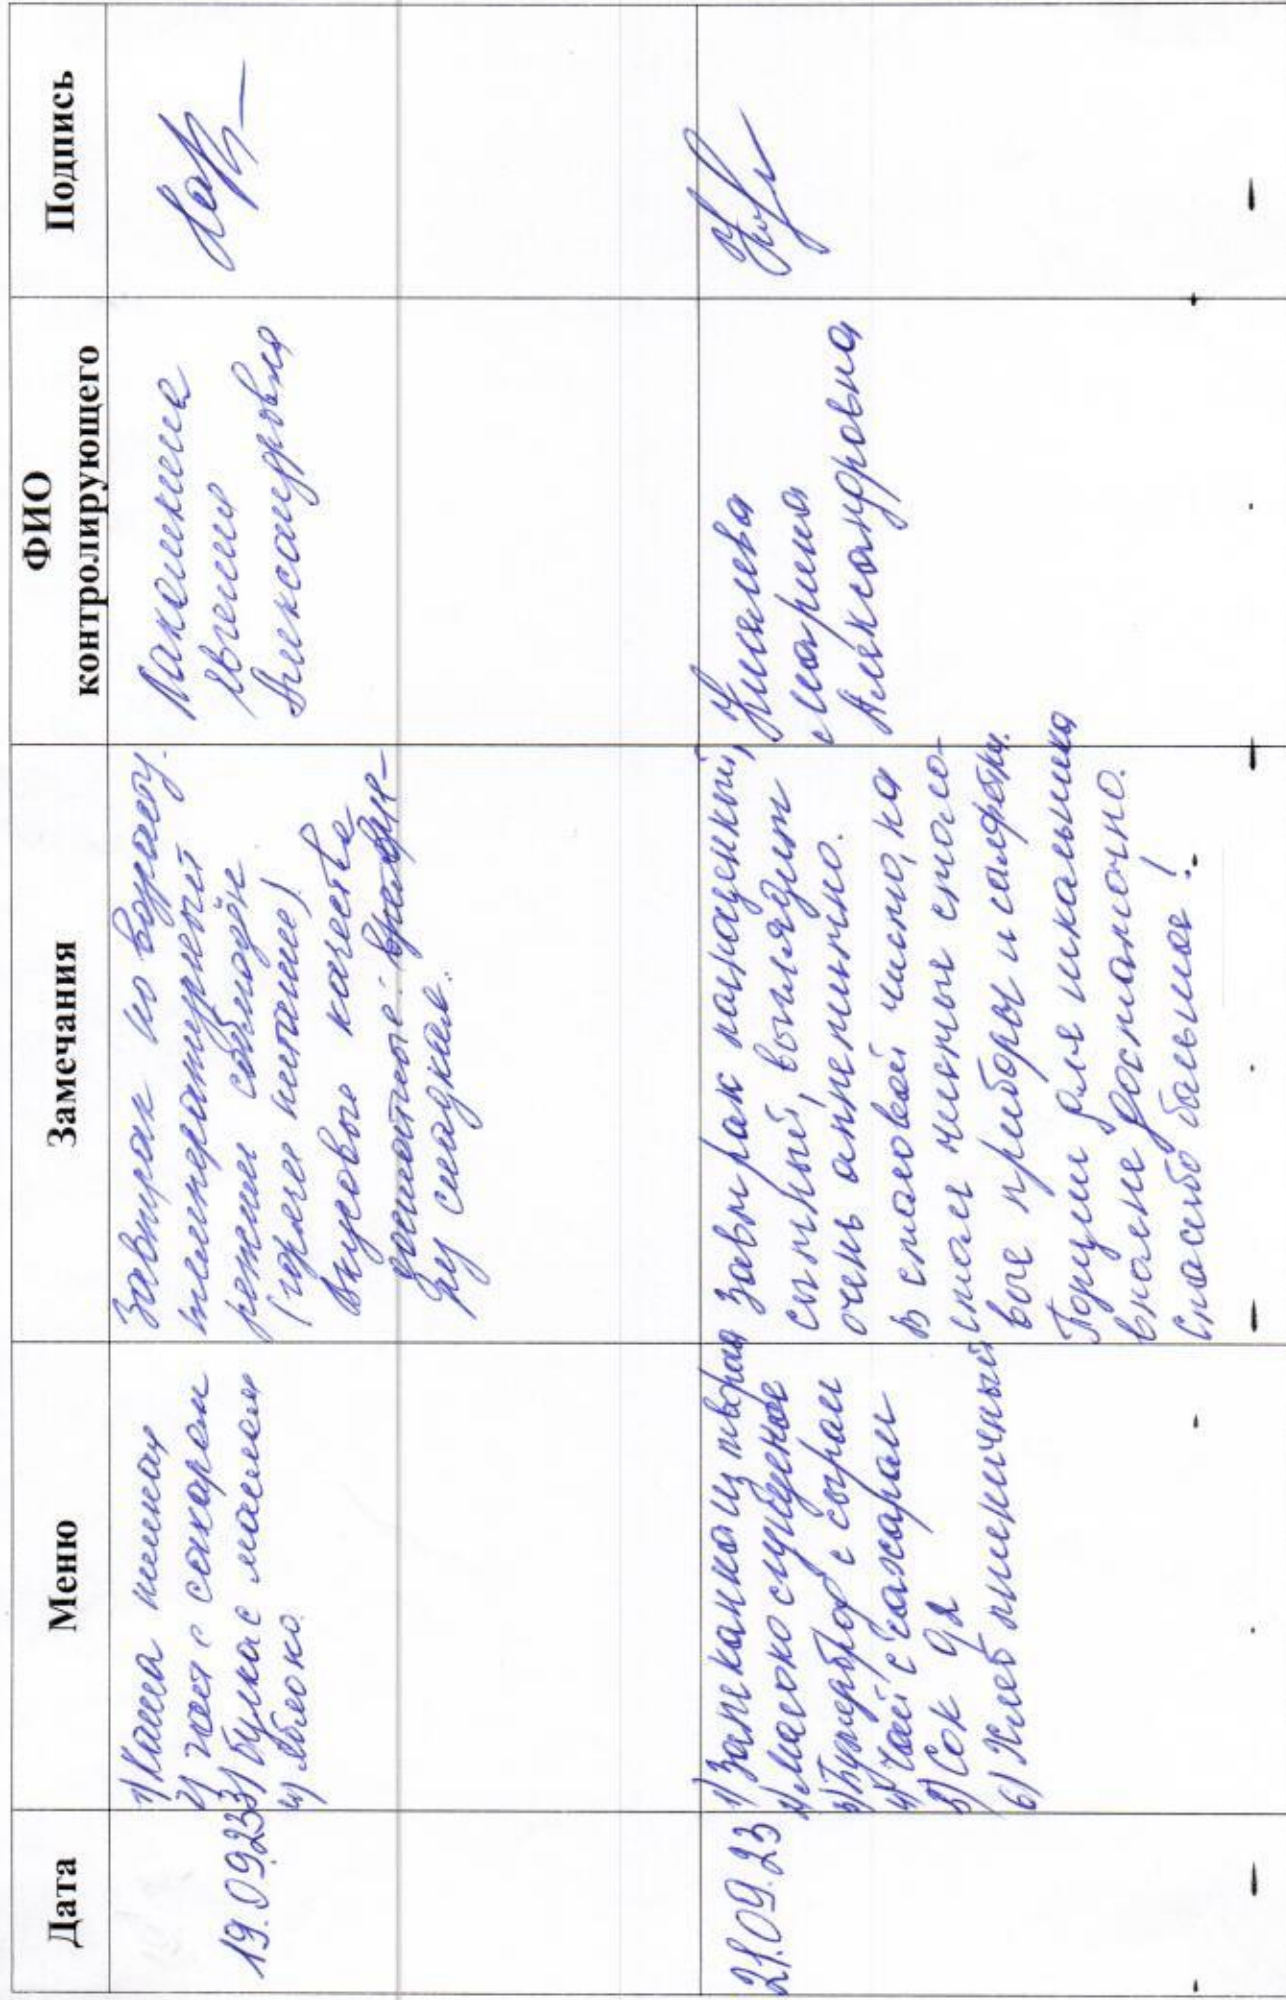 Дата
Меню
Замечания
ФИО
контролирующего
Подпись
19.09.23
1) Каша пшенная
2) чай с сахаром
3) булка с маслом
4) яблоко.
Завтрак по возрасту.
температурный
режим соблюдён
(горячее питание)
Вкусовые качества
Чу сладкая.
Евгения
Александровна
21.09.23
1) Запеканка из творога
2) Молоко сгущеное
3) Бутерброд с сыром
4) Чай с сахаром
5) Сок 0,2
6) Хлеб пшеничный
Завтрак полноценный,
сытный, выглядит
очень аппетитно.
В столовой чисто, на
столе чистые столо-
вые приборы и салфетки.
Порции для школьника
вполне достаточно.
Спасибо большое!
Киселева
Марина
Александровна